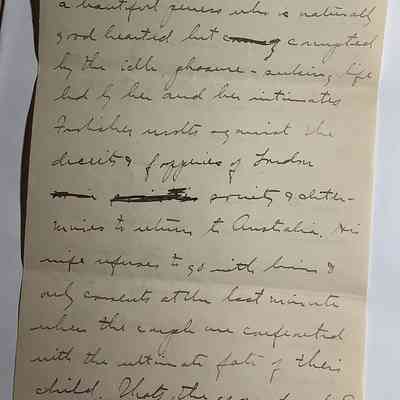 a beautiful peeress who is naturally
good hearted but corrupted
by the idle, pleasure-seeking life
led by her and her intimates
revolts against the
deceits & fopperies of London
society & deter-
mines to return to Australia. His
wife refuses to go with him &
only consents at the last minute
when the couple are confronted
with the ultimate fate of their
child. Thats the